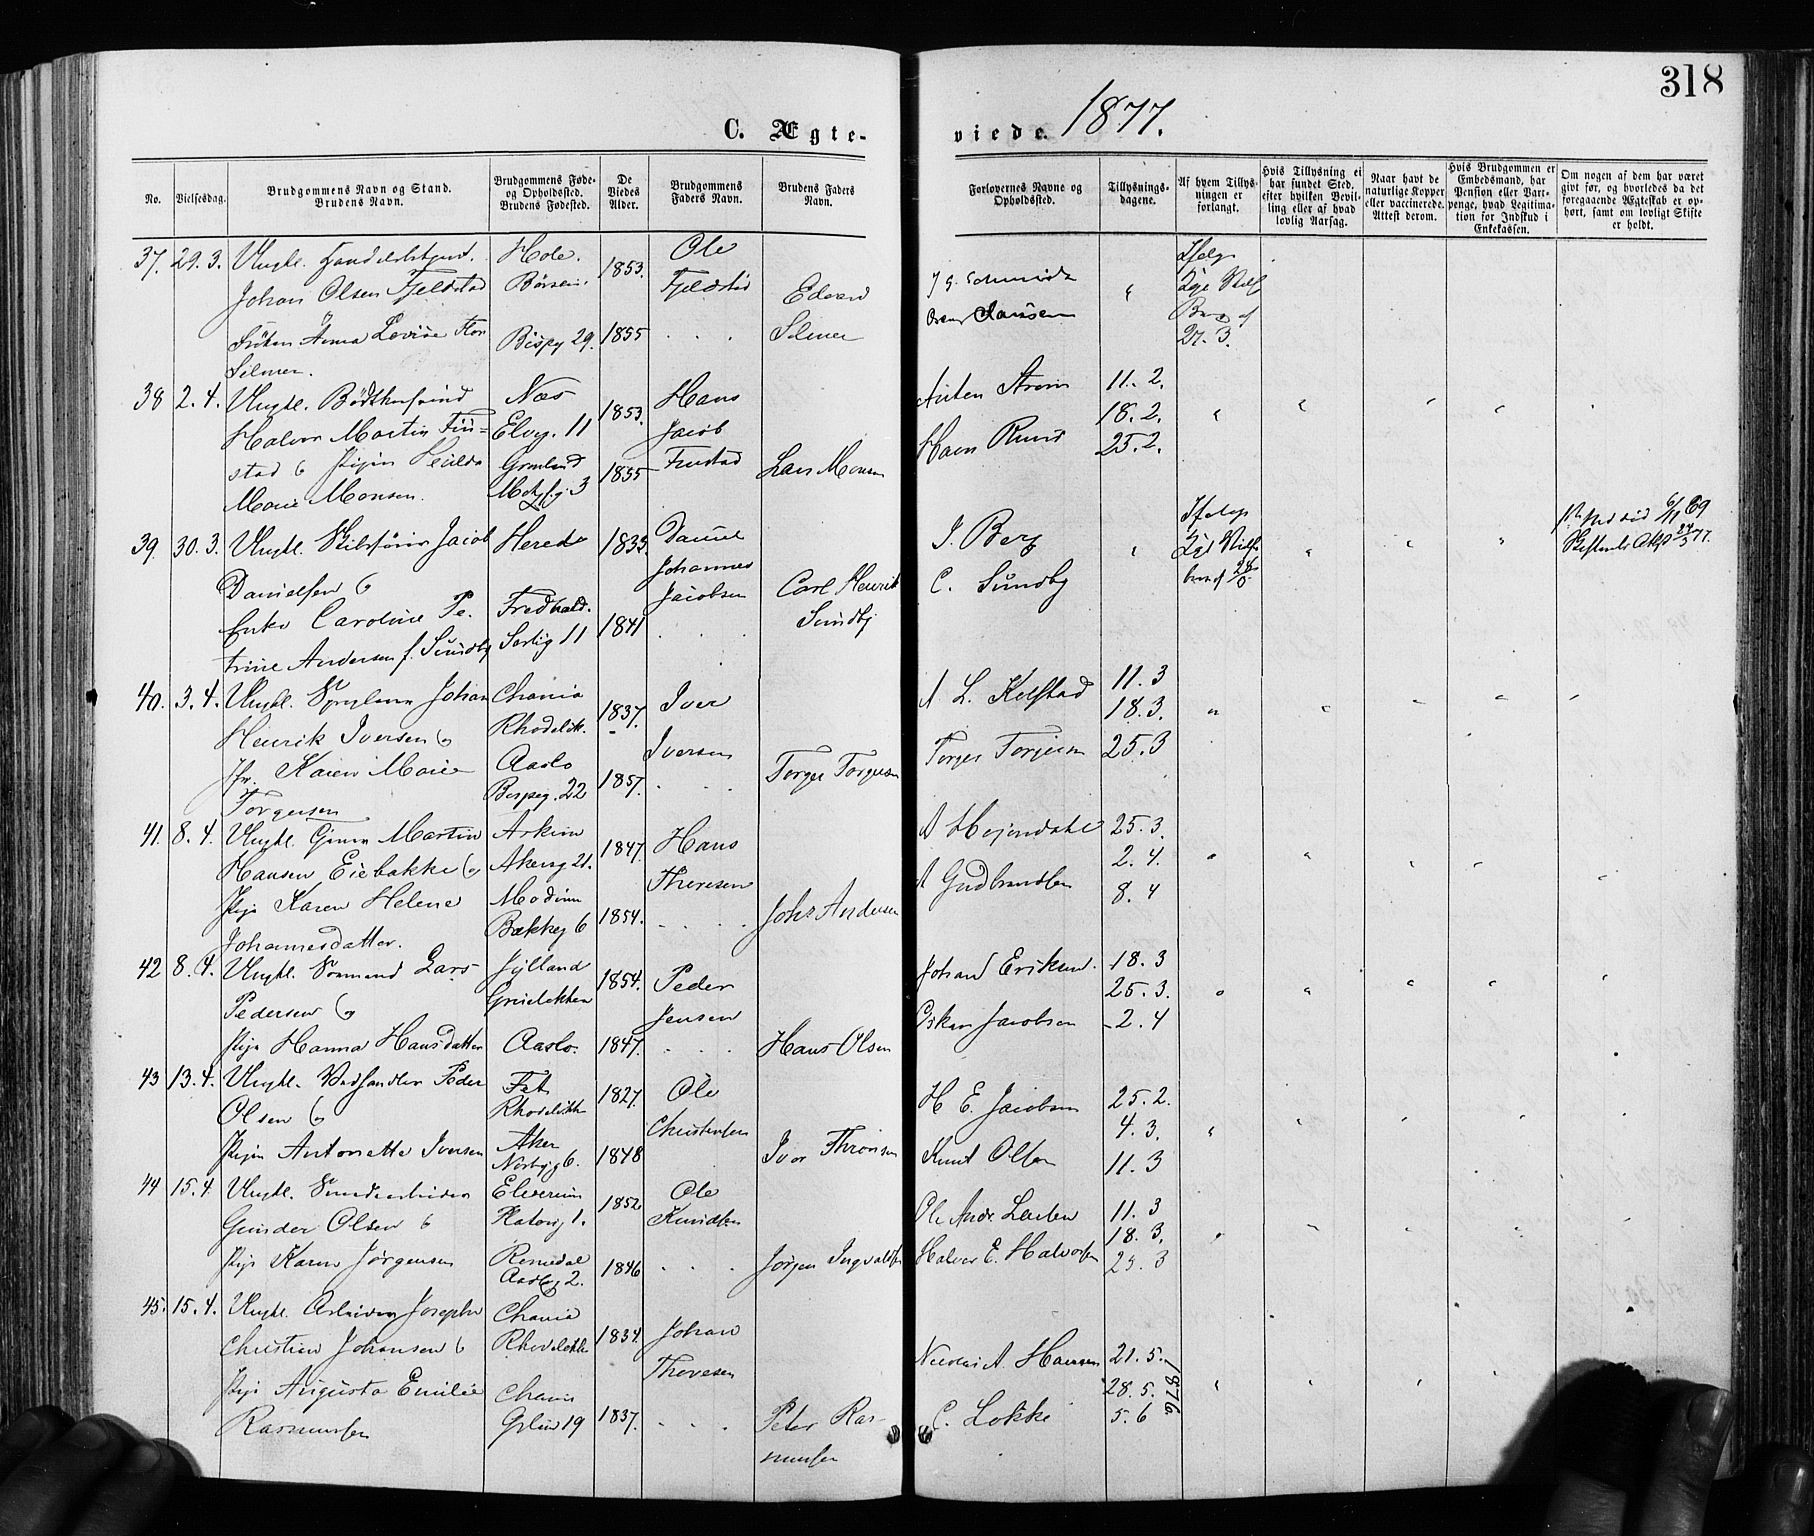 318
C. Ægte-
viede. 1877.
No.
Vielsesdag.
Brudgommens Navn og Stand.
Brudens Navn.
Brudgommens Føde-
og Opholdssted.
Brudens Fødested.
De
Viedes
Alder.
Brudgommens
Faders Navn.
Brudens Faders
Navn.
Forlovernes Navne og
Opholdssted.
Tillysnings-
dagene.
Af hvem Tillys-
ningen er
forlangt.
Hvis Tillysning ei
har fundet Sted,
efter hvilken Bevil-
ling eller af hvad
lovlig Aarsag.
Naar havt de
naturlige Kopper
eller vaccinerede.
Attest derom.
Hvis Brudgommen er
Embedsmand, har
Pension eller Var-
penge, hvad Legitima-
tion for Indskud i
Enkekassen.
Om nogen af dem har været
givt før, og hvorledes da det
foregaaende Ægteskab er op-
hørt, samt om lovligt Skifte
er holdt.
37. 29. 3. Ungkl.
Johan Olsen Fjeldstad
Frøken Anna Lovise
Silmer.
Hole.
Bispg 29.
1853.
1855
Ole
Fjeldstad
Edvard
Silmer
J G. Schmidt
Clausen
27. 3.
38 2. 4. Ungkl. Bødkersvend
Halvor Martin Fru=
stad & Pigen Hilda
Marie Monsen.
Næs
Elveg. 11
Grønland
3
1853.
1855
Hans
Jacob
Frustad
Lars Monsen
Anton Strøm
Hans Ruud
11. 2.
18. 2.
25. 2.
39 30. 3. Ungkl. Skibsfører Jacob
Danielsen &
Enke Caroline Pe-
trine Andersen f. Sundby
Fredhald.
Sorlig 11
1835.
1841
Daniel
Johannes
Jacobsen
Carl Henrik
Sundby
J. Berg
C. Sundby
40. 3. 4. Ungkl. Johan
Henrik Iversen &
Jfr. Karen Marie
Torgersen
Chania
Rhodeløk.
Aaslo
Bispeg. 22
1837.
1857.
Iver
Iversen
Torger Torgersen
A. L. Kolstad
Torger Torgersen
11. 3
18. 3.
25. 3
41. 8. 4. Ungkl. Martin
Hansen Eiebakke &
Pige Karen Helene
Johannesdatter.
Askim
Akersg 21.
Modum
Bækkeg 6
1847.
1854.
Hans
Thoresen
Johs Andersen
A Gudbrandsen
25. 3.
2. 4.
8. 4
42 8. 4. Ungkl. Sømand Lars
Pedersen &
Pige Hanna Hansdatter
Jylland
Grüneløkken
Aaslo.
1854.
1847.
Peder
Jensen
Hans Olsen
Johan Eriksen.
Oskar Jacobsen
18. 3
25. 3.
2. 4
43 13. 4. Ungkl. Vedhandler Peder
Olsen &
Pigen Antonette Iversen
Fet
Rhodeløkken
Aker
Norbyg 6.
1827.
1848
Ole
Christensen
Iver Thronsen
H E. Jacobsen
Knut Olsen
25. 2.
4. 3.
11. 3
44 15. 4. Ungkl.
Gunder Olsen &
Pige Karen Jørgensen
Elverum
Platoug 1.
Romedal
Aaslog 2.
1852
1846
Ole
Knudsen
Jørgen Ingvaldsen
Ole Andr. Larsen
Halvor E. Halvorsen
11. 3
18. 3.
25. 3
45. 15. 4. Ungkl. Arbeider Joseph
Christian Johansen &
Pige Augusta Emilie
Rasmussen
Chania
Rhodeløkk
Chania
Grün 19
1834.
1837.
Johan
Thoresen
Peter Ras-
mussen
Nicolai A. Hansen
C. Løkke
21. 5.
28. 5.
5. 6
1876